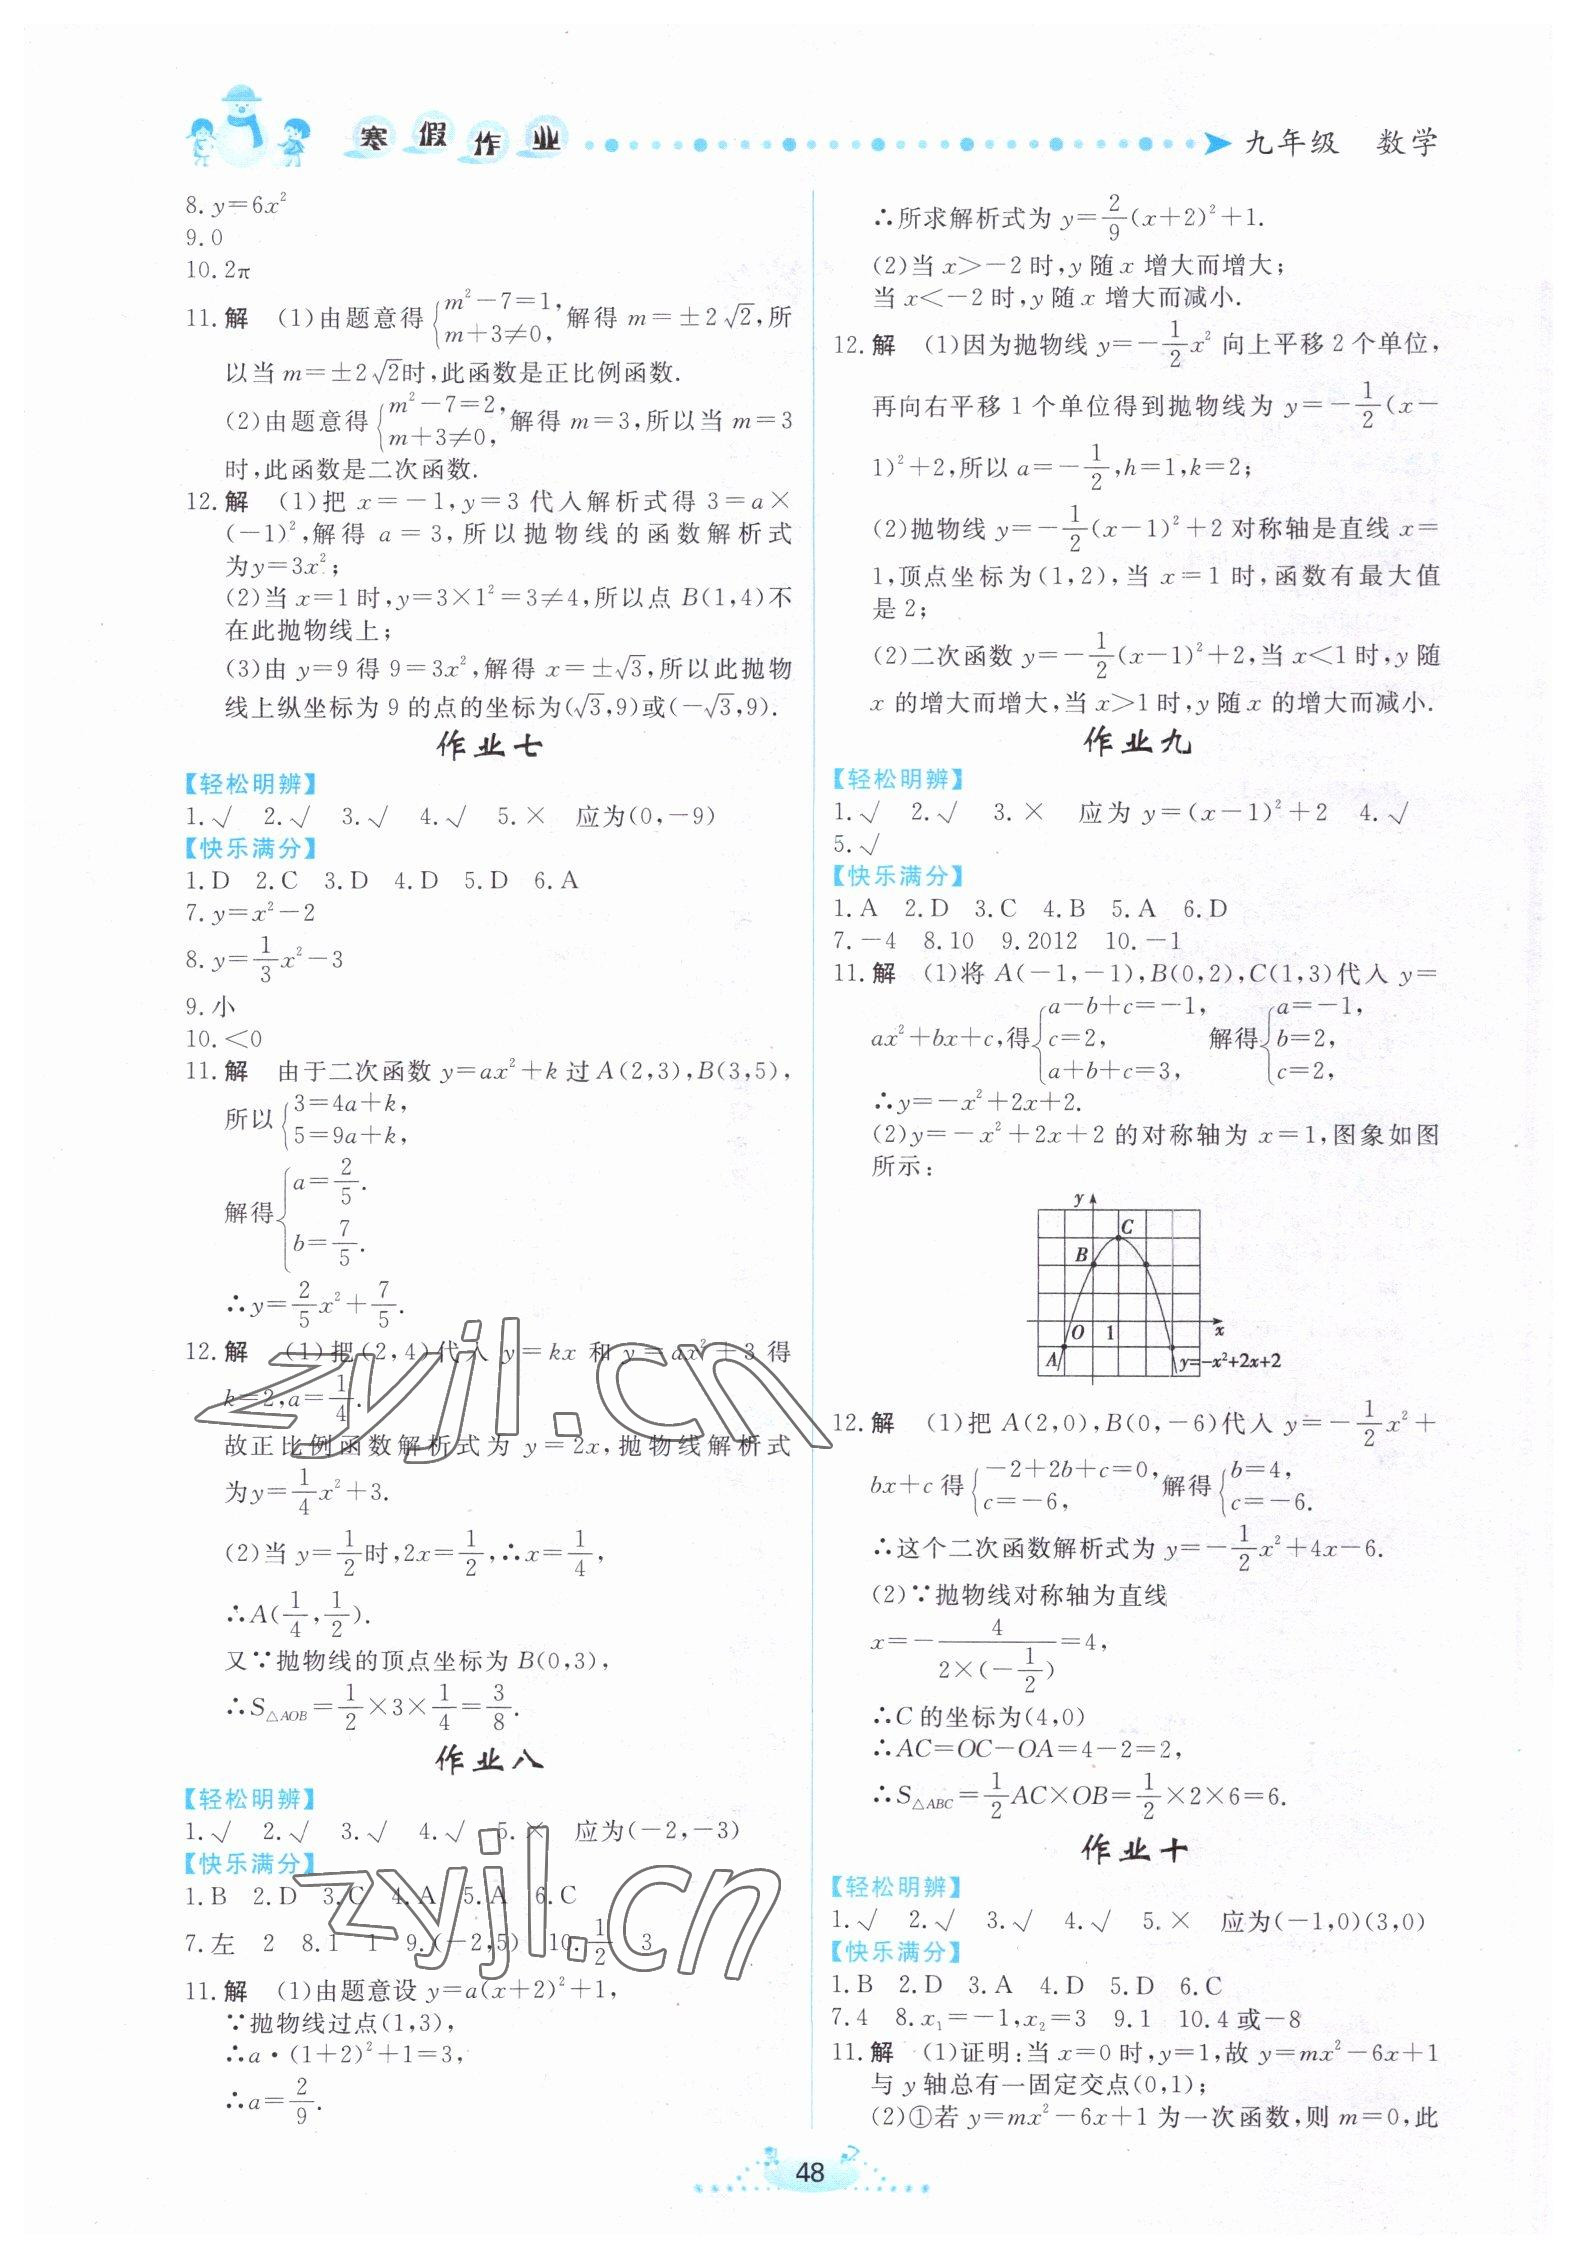 寒假作业
九年级 数学
8. y=6x²
9. 0
10. 2π
11. 解 (1)由题意得{m²-7=1, m+3≠0, 解得 m=±2√2,所
以当 m=±2√2时,此函数是正比例函数.
(2)由题意得{m²-7=2, m+3≠0, 解得 m=3,所以当 m=3
时,此函数是二次函数.
12. 解 (1)把 x=-1,y=3 代入解析式得 3=a×
(-1)²,解得 a=3,所以抛物线的函数解析式
为y=3x²;
(2)当 x=1 时,y=3×1²=3≠4,所以点 B(1,4)不
在此抛物线上;
(3)由 y=9 得 9=3x²,解得 x=±√3,所以此抛物
线上纵坐标为 9 的点的坐标为(√3,9)或(-√3,9).
作业七
【轻松明辨】
1.√ 2.√ 3.√ 4.√ 5.× 应为(0,-9)
【快乐满分】
1.D 2.C 3.D 4.D 5.D 6.A
7. y=x²-2
8. y=1/3x²-3
9. 小
10. <0
11. 解 由于二次函数 y=ax²+k 过 A(2,3),B(3,5),
所以{3=4a+k, 5=9a+k,
解得{a=2/5. b=7/5.
∴y=2/5x²+7/5.
12. 解 (1)把(2,4)代入 y=kx 和 y=ax²+3 得
k=2,a=1/4.
故正比例函数解析式为 y=2x,抛物线解析式
为y=1/4x²+3.
(2)当 y=1/2时,2x=1/2,∴x=1/4,
∴A(1/4,1/2).
又∵抛物线的顶点坐标为 B(0,3),
∴S△AOB=1/2×3×1/4=3/8.
作业八
【轻松明辨】
1.√ 2.√ 3.√ 4.√ 5.× 应为(-2,-3)
【快乐满分】
1.B 2.D 3.C 4.A 5.A 6.C
7.左 2 8.1 1 9.(-2,5) 10.1/2 3
11. 解 (1)由题意设 y=a(x+2)²+1,
∵抛物线过点(1,3),
∴a·(1+2)²+1=3,
∴a=2/9.
∴所求解析式为 y=2/9(x+2)²+1.
(2)当 x>-2 时,y 随 x 增大而增大;
当 x<-2 时,y 随 x 增大而减小.
12. 解 (1)因为抛物线 y=-1/2x² 向上平移 2 个单位,
再向右平移 1 个单位得到抛物线为 y=-1/2(x-
1)²+2,所以 a=-1/2,h=1,k=2;
(2)抛物线 y=-1/2(x-1)²+2 对称轴是直线 x=
1,顶点坐标为(1,2),当 x=1 时,函数有最大值
是 2;
(2)二次函数 y=-1/2(x-1)²+2,当 x<1 时,y 随
x 的增大而增大,当 x>1 时,y 随 x 的增大而减小.
作业九
【轻松明辨】
1.√ 2.√ 3.× 应为 y=(x-1)²+2 4.√
5.√
【快乐满分】
1.A 2.D 3.C 4.B 5.A 6.D
7.-4 8.10 9.2012 10.-1
11. 解 (1)将 A(-1,-1),B(0,2),C(1,3)代入 y=
ax²+bx+c,得{a-b+c=-1, c=2, a+b+c=3, 解得{a=-1, b=2, c=2,
∴y=-x²+2x+2.
(2)y=-x²+2x+2 的对称轴为 x=1,图象如图
所示:
y
C
B
O 1 x
A y=-x²+2x+2
12. 解 (1)把 A(2,0),B(0,-6)代入 y=-1/2x²+
bx+c 得{-2+2b+c=0, c=-6, 解得{b=4, c=-6.
∴这个二次函数解析式为 y=-1/2x²+4x-6.
(2)∵抛物线对称轴为直线
x=-4/(2×(-1/2))=4,
∴C 的坐标为(4,0)
∴AC=OC-OA=4-2=2,
∴S△ABC=1/2AC×OB=1/2×2×6=6.
作业十
【轻松明辨】
1.√ 2.√ 3.√ 4.√ 5.× 应为(-1,0)(3,0)
【快乐满分】
1.B 2.D 3.A 4.D 5.D 6.C
7.4 8.x₁=-1,x₂=3 9.1 10.4 或-8
11. 解 (1)证明:当 x=0 时,y=1,故 y=mx²-6x+1
与 y 轴总有一固定交点(0,1);
(2)①若 y=mx²-6x+1 为一次函数,则 m=0,此
48
zyjl.cn
zyjl.cn